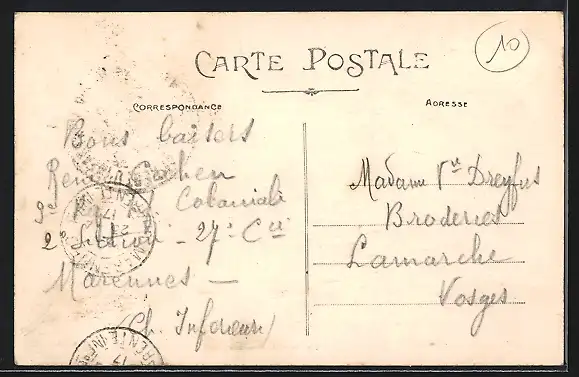 10
CARTE POSTALE
CORRESPONDANCE
ADRESSE
Bons baisers
René Cahen
3e Colonial
2e Section - 27e Cie
Marennes -
(Ch. Inférieure)
Madame Vve Dreyfus
Broderies
Lamarche
Vosges